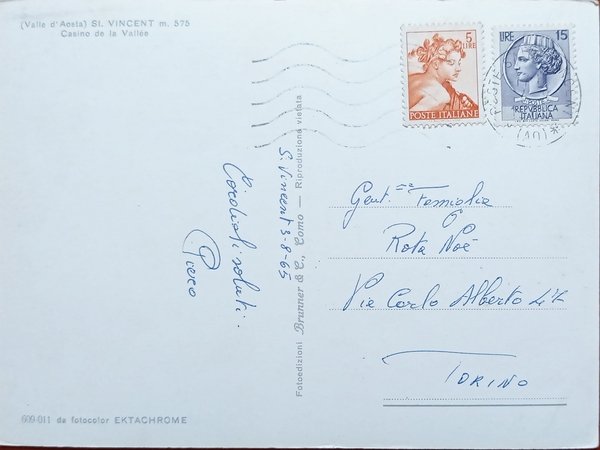 (Valle d'Aosta) St. VINCENT m. 575
Casino de la Vallée
5
LIRE
POSTE ITALIANE
LIRE 15
POSTE
REPVBBLICA
ITALIANA
POSTE
(AO)*
S. Vincent 3-8-65
Cordiali saluti.
Piero
Fotoedizioni Brunner & C., Como — Riproduzione vietata
Gent.ma Famiglia
Rota Noè
Via Carlo Alberto
TORINO
609-011 da fotocolor EKTACHROME